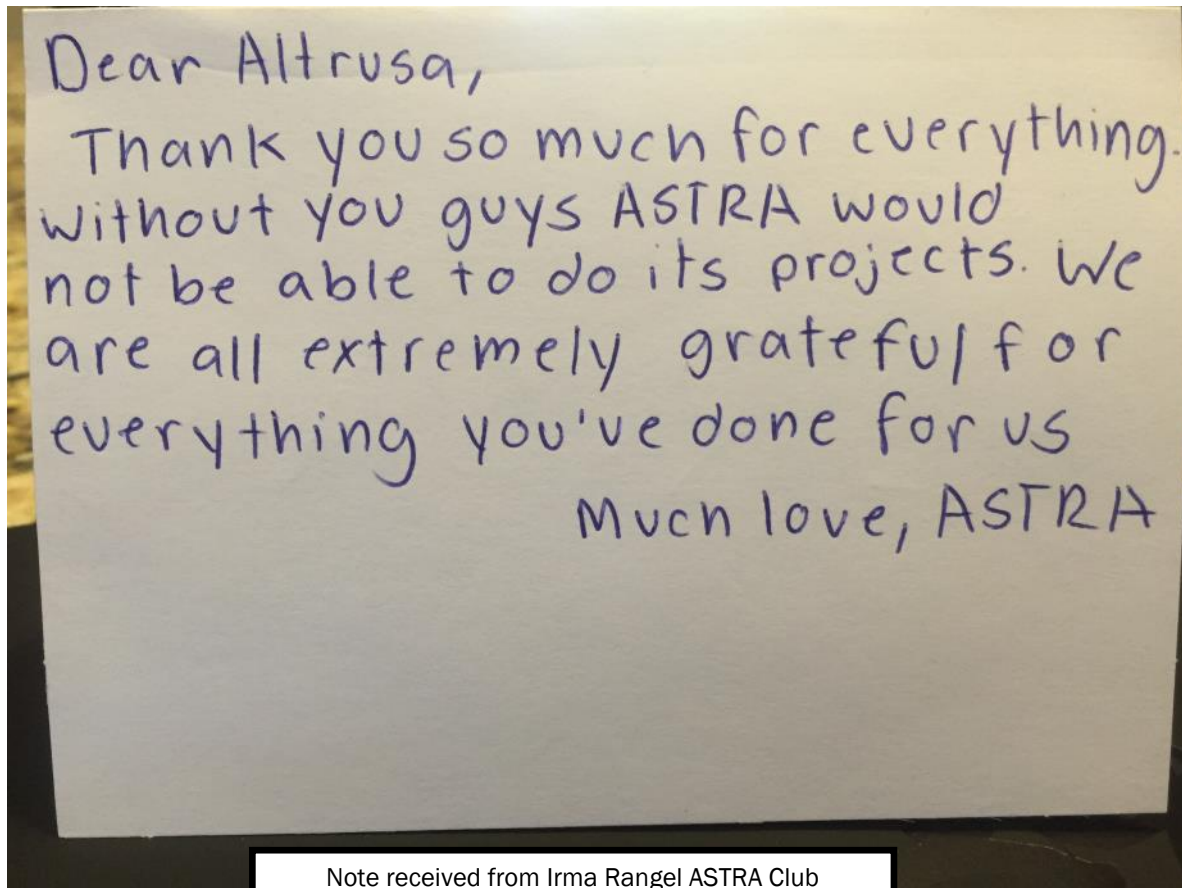 Dear Altrusa,
Thank you so much for everything.
without you guys ASTRA would
not be able to do its projects. We
are all extremely grateful for
everything you've done for us
Much love, ASTRA
Note received from Irma Rangel ASTRA Club